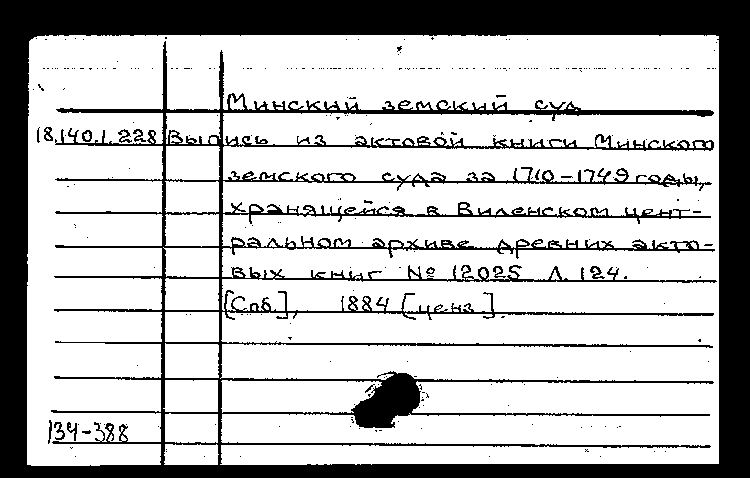 Минский земский суд
18.140.1.228 Выпись из актовой книги Минского
земского суда за 1710-1749 годы,
хранящейся в Виленском цент-
ральном архиве древних акто-
вых книг № 12025 Л. 124.
[Спб.], 1884 [ценз.].
134-388